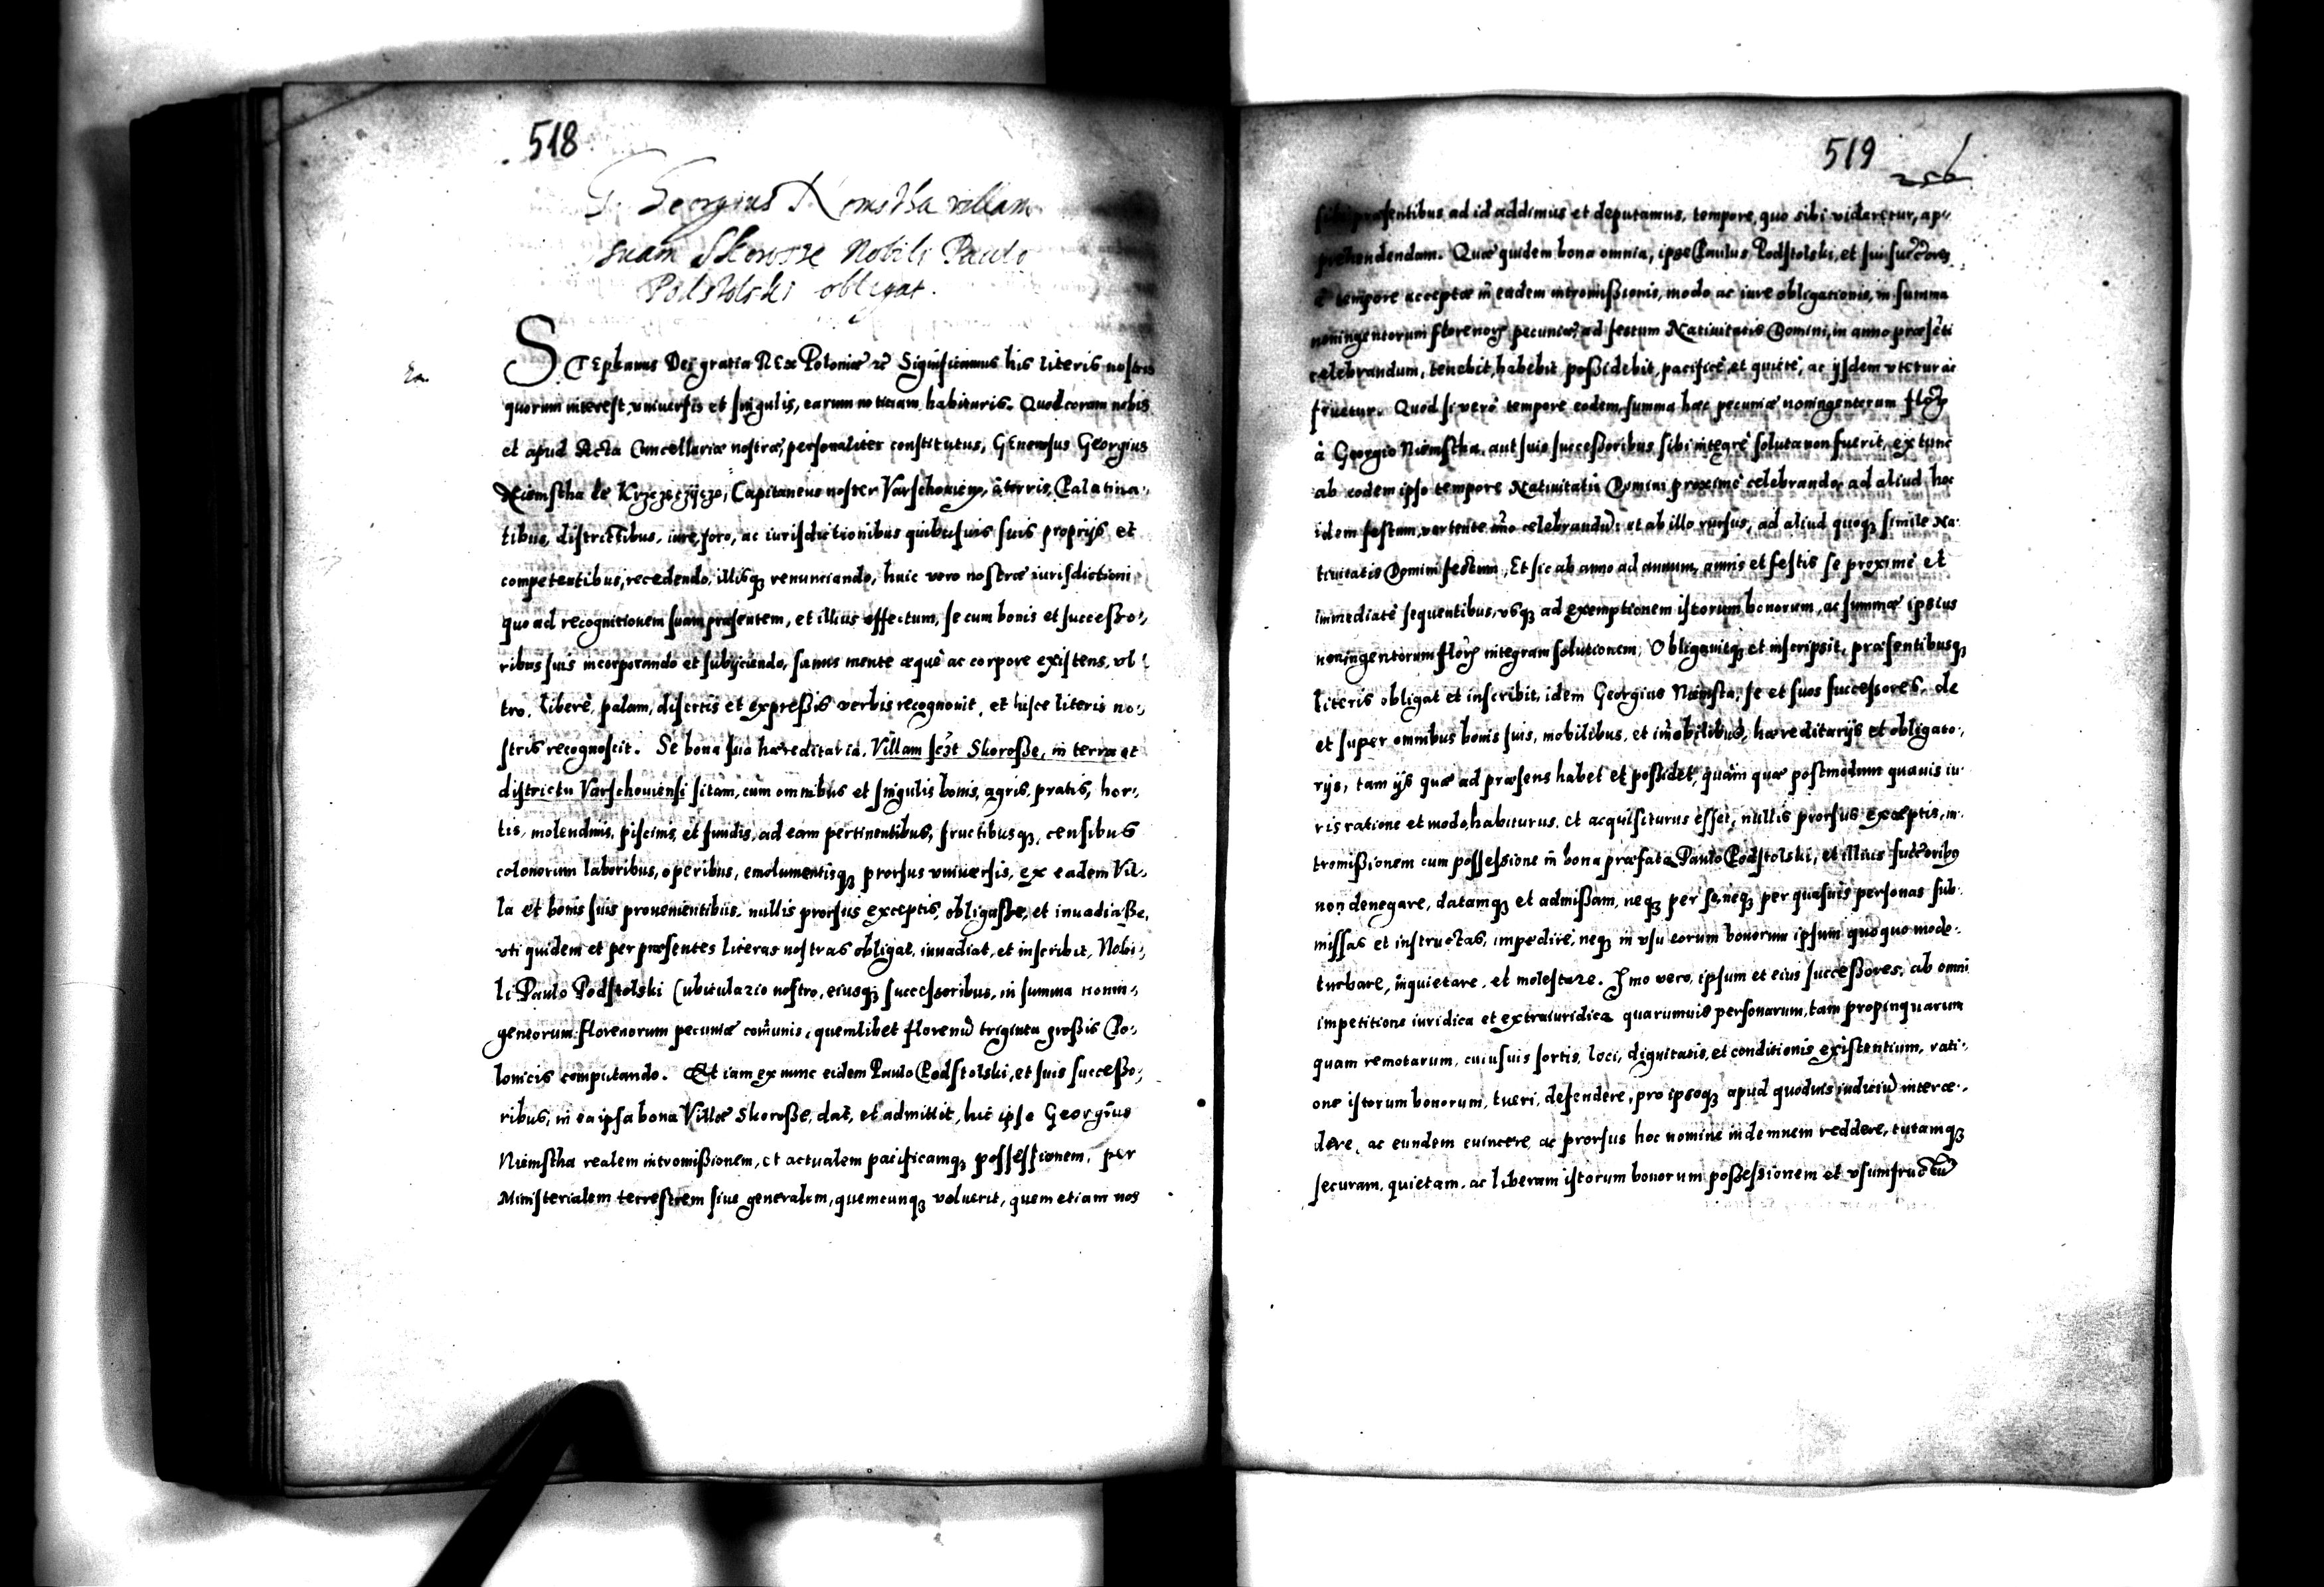 518
G. Georgius Niemstha villam
suam Skorosse Nobili Paulo
Podstolski obligat.
STEphanus Dei gratia REx Poloniæ etc Significamus his literis nostris
quorum interest, vniuersis et singulis, earum noticiam habituris. Quod coram nobis
et apud Acta Cancellariæ nostræ, personaliter constitutus, GEnerosus Georgius
Niemstha de Krzczęczÿczo, Capitaneus noster Varschouien, à terris, Palatina-,
tibus, districtibus, iure, foro, ac iurisdictionibus quibusuis suis proprijs et
competentibus, recedendo, illisq₃ renunciando, huic vero nostræ iurisdictioni
quo ad recognitionem suam præsentem, et illius effectum, se cum bonis et successo-,
ribus suis incorporando et subijciendo, sanus mente æquè ac corpore existens, vl
tro, liberè, palam, disertis et expreßis verbis recognouit, et hisce literis no-,
stris recognoscit. Se bona sua hæreditaria, Villam scz̃t Skoroße, in terra et
districtu Varschouiensi sitam, cum omnibus et singulis bonis, agris, pratis, hor-,
tis, molendinis, piscinis, et fundis, ad eam pertinentibus, fructibusq₃, censibus
colonorum laboribus, operibus, emolumentisq₃ prorsus vniuersis, ex eadem Vil-,
la et bonis suis prouenientibus, nullis prorsus exceptis, obligaße, et inuadiaße,
vti quidem et per præsentes literas nostras obligat, inuadiat, et inscribit, Nobi-,
li Paulo Podstolski Cubiculario nostro, eiusq₃ successoribus, in summa nonin-,
gentorum florenorum pecuniæ com̃unis, quemlibet florenũ triginta großis Po-,
lonicis computando. Et iam ex nunc eidem Paulo Podstolski, et suis succeßo-,
ribus, in ea ipsa bona Villæ Skoroße, dat, et admittit, hic ipse Georgius
Niemstha realem intromißionem, et actualem pacificamq₃ possessionem, per
Ministerialem terrestrem siue generalem, quemcunq₃ voluerit, quem etiam nos
519
256
præsentibus ad id addimus et deputamus, tempore, quo sibi videretur, ap-,
prehendendam. Quæ quidem bona omnia, ipse Paulus Podstolski, et sui succ̃ores
à tempore acceptæ in eadem intromißionis, modo ac iure obligationis, in summa
noningentorum florenorꝝ pecuniæ, ad festum Natiuitatis Domini, in anno præsẽti
celebrandum, tenebit, habebit, poßidebit, pacificè et quietè, ac ijsdem vtetur ac
fruetur. Quod si verò tempore eodem, summa hæc pecuniæ noningentorum flõrꝝ
à Georgio Niemstha, aut suis succeßoribus, sibi integrè soluta non fuerit, ex tunc
ab eodem ipso tempore Natiuitatis Domini proximè celebrandæ, ad aliud hoc
idem festum, vertente an̄o celebrandũ: et ab illo rursus, ad aliud quoq₃ simile Na-
tiuitatis Domini festum, Et sic ab anno ad annum, annis et festis se proximè et
immediatè sequentibus, vsq₃ ad exemptionem istorum bonorum, ac summæ ipsius
noningentorum flõrꝝ integram solutionem. Obligauitq₃ et inscripsit, præsentibusq₃
literis obligat et inscribit, idem Georgius Niemsta, se et suos successores, de
et super omnibus bonis suis, mobilibus, et im̃obilibus, hæreditarijs et obligato-,
rijs, tam ijs quæ ad præsens habet et poßidet, quàm quæ postmodum quauis iu-
ris ratione et modo, habiturus, et acquisiturus esset, nullis prorsus exceptis, in-
tromißionem cum possessione in bona præfata Paulo Podstolski, et illius succ̃oribꝫ
non denegare, datamq₃ et admißam, neq₃ per se, neq₃ per quasuis personas sub-
missas et instructas, impedire, neq₃ in vsu eorum bonorum ipsum quoquo modo
turbare, inquietare, et molestare. Imo vero, ipsum et eius succeßores, ab omni
impetitione iuridica et extraiuridica quarumuis personarum, tam propinquarum
quam remotarum, cuiusuis sortis, loci, dignitatis, et conditionis existentium, rati-,
one istorum bonorum, tueri, defendere, pro ipsoq₃ apud quoduis iudiciũ interce-,
dere, ac eundem euincere, ac prorsus hoc nomine indemnem reddere, tutamq₃
securam, quietam, ac liberam istorum bonorum poßessionem et vsumfructũ